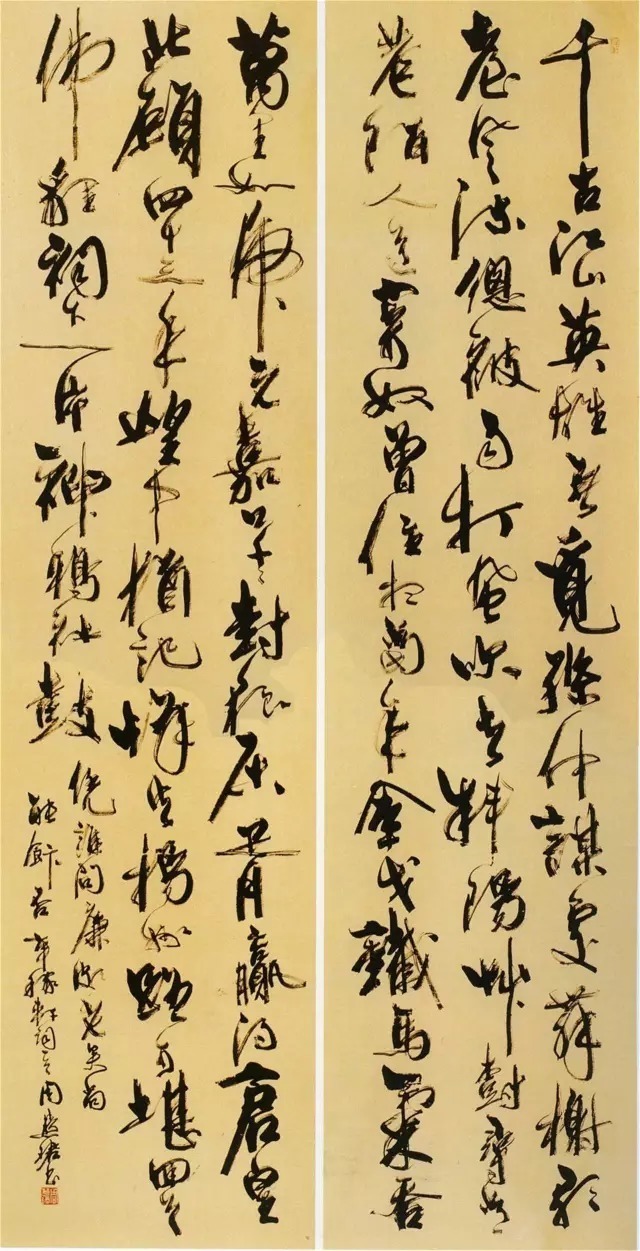 千古江山英雄無覓孫仲謀處舞榭歌
臺風流總被雨打風吹去斜陽草樹尋常
巷陌人道寄奴曾住想當年金戈鐵馬氣吞
萬里如虎元嘉草草封狼居胥贏得倉皇
北顧四十三年望中猶記烽火揚州路可堪回首
佛貍祠下一片神鴉社鼓
憑誰問廉頗老矣尚
能飯否辛稼軒詞周慧珺書